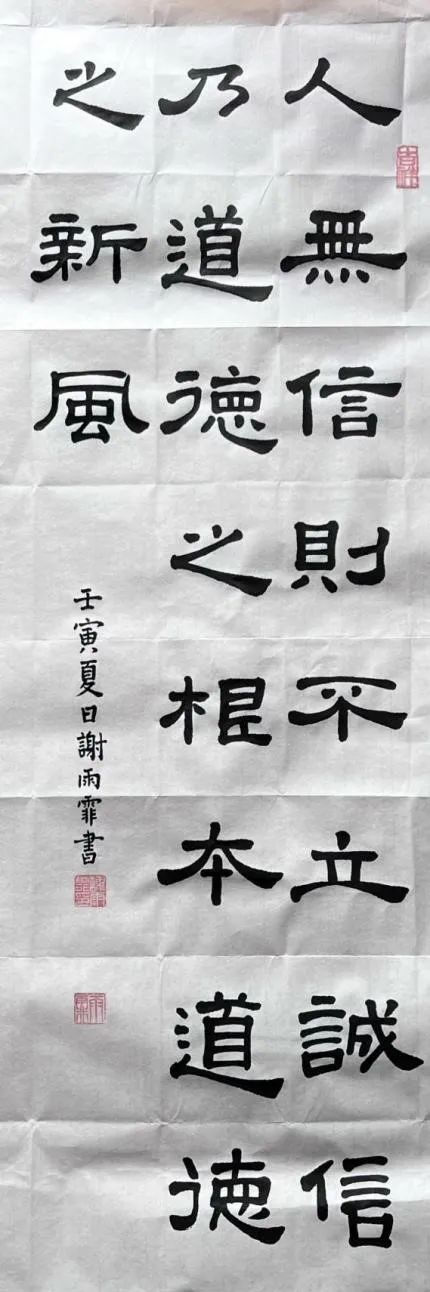 人無信則不立誠信
乃道德之根本道德
之新風
壬寅夏日謝雨霏書